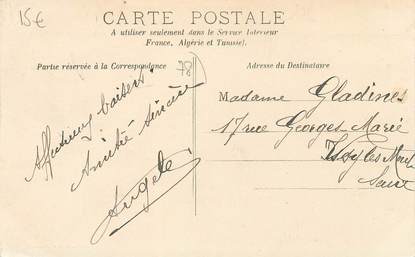 15€
CARTE POSTALE
A utiliser seulement dans le Service Intérieur
France, Algérie et Tunisie).
Partie réservée à la Correspondance
Adresse du Destinataire
78
Affectueux baisers
Amitié sincère
Angele
Madame Gladines
17 rue Georges Marie
Issy les Moul
Seine